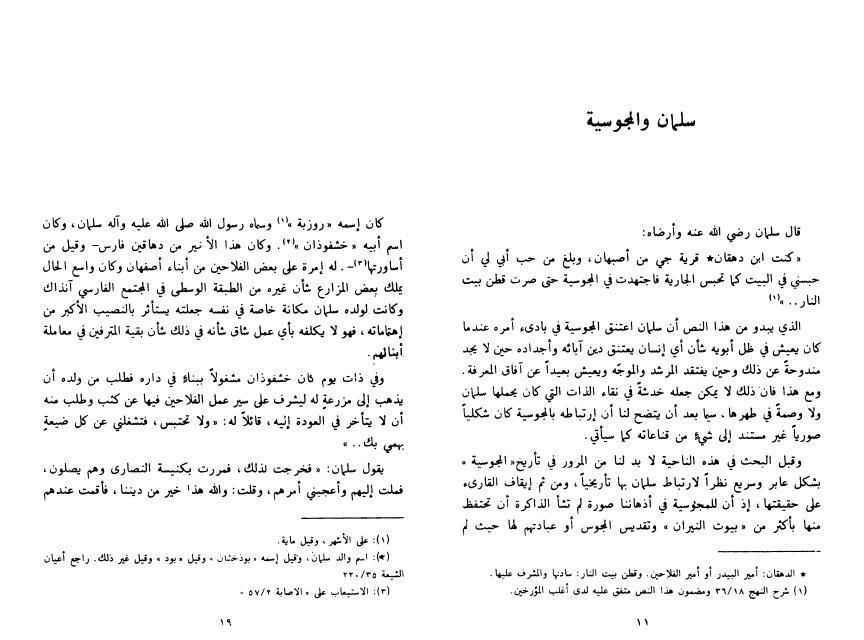 سلمان والمجوسية
قال سلمان رضي الله عنه وأرضاه:
«كنت ابن دهقان★ قرية جي من أصبهان، وبلغ من حب أبي لي أن
حبسني في البيت كما تحبس الجارية فاجتهدت في المجوسية حتى صرت قطن بيت
النار.. »(١)
الذي يبدو من هذا النص أن سلمان اعتنق المجوسية في بادىء أمره عندما
كان يعيش في ظل أبويه شأن أي إنسان يعتنق دين آبائه وأجداده حين لا يجد
مندوحةً عن ذلك وحين يفتقد المرشد والموجّه ويعيش بعيداً عن آفاق المعرفة.
ومع هذا فان ذلك لا يمكن جعله خدشةً في نقاء الذات التي كان يحملها سلمان
ولا وصمةً في طهرها، سيما بعد أن يتضح لنا أن إرتباطه بالمجوسية كان شكلياً
صورياً غير مستند إلى شيءٍ من قناعاته كما سيأتي.
وقبل البحث في هذه الناحية لا بد لنا من المرور في تأريخ« المجوسية »
بشكل عابر وسريع نظراً لارتباط سلمان بها تأريخياً، ومن ثم إيقاف القارىء
على حقيقتها، إذ أن للمجوسية في أذهاننا صورة لم تشأ الذاكرة أن تحتفظ
منها بأكثر من «بيوت النيران » وتقديس المجوس أو عبادتهم لها حيث لم
★ الدهقان: أمير البيدر أو أمير الفلاحين. وقطن بيت النار: سادنها والمشرف عليها.
(١) شرح النهج ٣٦/١٨ ومضمون هذا النص متفق عليه لدى أغلب المؤرخين.
١١
كان إسمه « روزبة »(١) وسماه رسول الله صلى الله عليه وآله سلمان، وكان
اسم أبيه « خشفوذان »(٢). وكان هذا الأ نير من دهاقين فارس- وقيل من
أساورتها(٣)-. له إمرة على بعض الفلاحين من أبناء أصفهان وكان واسع الحال
يملك بعض المزارع شأن غيره من الطبقة الوسطى في المجتمع الفارسي آنذاك
وكانت لولده سلمان مكانة خاصة في نفسه جعلته يستأثر بالنصيب الأكبر من
إهتماماته، فهو لا يكلفه بأي عمل شاق شأنه في ذلك شأن بقية المترفين في معاملة
أبنائهم.
وفي ذات يوم كان خشفوذان مشغولاً ببناءٍ في داره فطلب من ولده أن
يذهب إلى مزرعةٍ له ليشرف على سير عمل الفلاحين فيها عن كثب وطلب منه
أن لا يتأخر في العودة إليه، قائلاً له: «ولا تحتبس، فتشغلني عن كل ضيعةٍ
يهمي بك.. »
يقول سلمان: « فخرجت لذلك، فمررت بكنيسة النصارى وهم يصلون،
فملت إليهم وأعجبني أمرهم، وقلت: والله هذا خير من ديننا، فأقمت عندهم
(١): على الأشهر، وقيل ماية.
(★): اسم والد سلمان، وقيل إسمه « بوذخشان » وقيل « بود » وقيل غير ذلك. راجع أعيان
الشيعة ٢٢٠/٣٥
(٣): الاستيعاب على « الاصابة ٥٧/٢ -
١٩